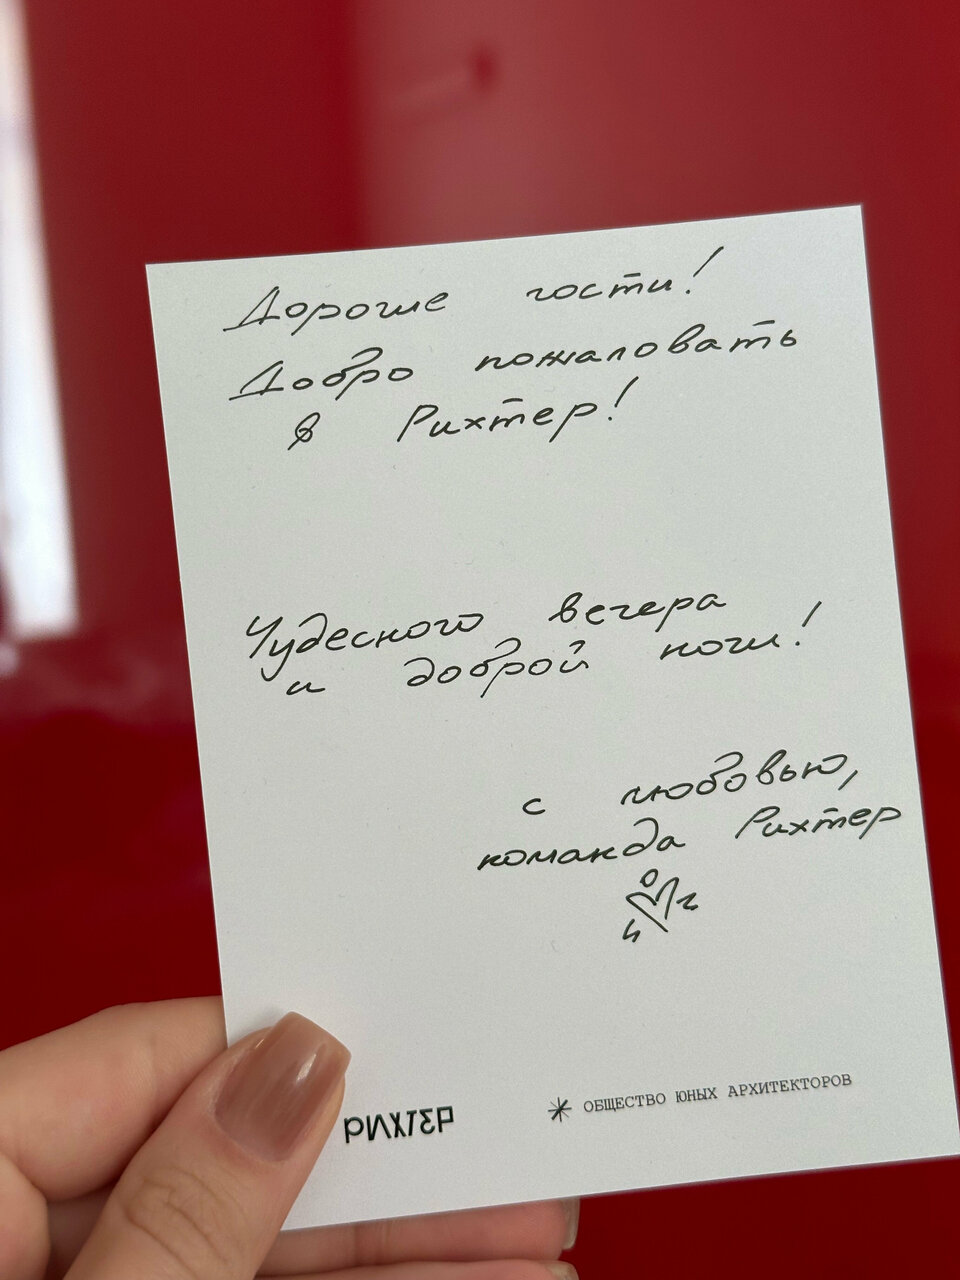 Дорогие гости!
Добро пожаловать
в Рихтер!
Чудесного вечера
и доброй ночи!
с любовью,
команда Рихтер
РИХТЕР
ОБЩЕСТВО ЮНЫХ АРХИТЕКТОРОВ